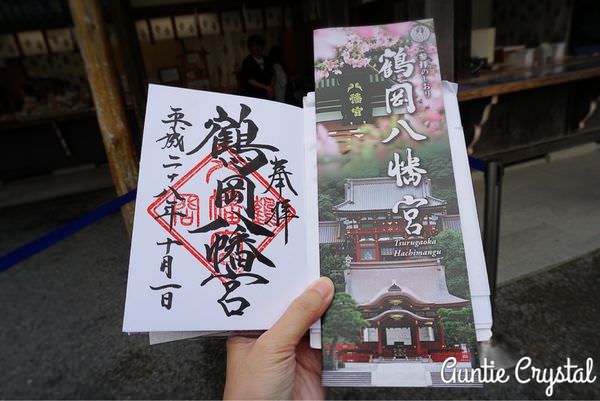 奉拝
鶴岡八幡宮
平成二十八年十月一日
参拝のしおり
鶴岡八幡宮
Tsurugaoka
Hachimangu
八幡宮
Auntie Crystal